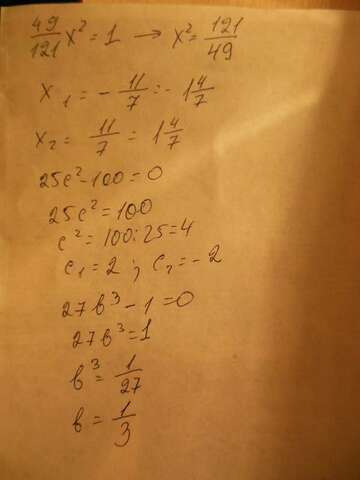 49/121 x² = 1 → x² = 121/49
x₁ = - 11/7 = - 1 4/7
x₂ = 11/7 = 1 4/7
25c² - 100 = 0
25c² = 100
c² = 100:25 = 4
c₁ = 2 ; c₂ = - 2
27b³ - 1 = 0
27b³ = 1
b³ = 1/27
b = 1/3